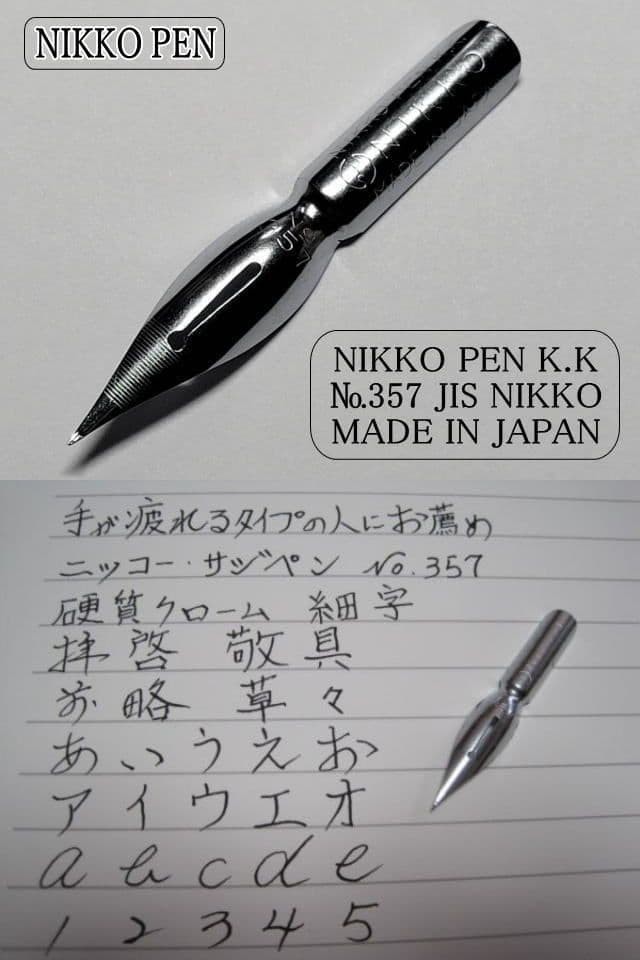 NIKKO PEN
NIKKO
MADE IN
NIKKO PEN K.K
№357 JIS NIKKO
MADE IN JAPAN
手が疲れるタイプの人にお薦め
ニッコー・サジペン No.357
硬質クローム 細字
拝啓 敬具
前略 草々
あいうえお
アイウエオ
a b c d e
1 2 3 4 5